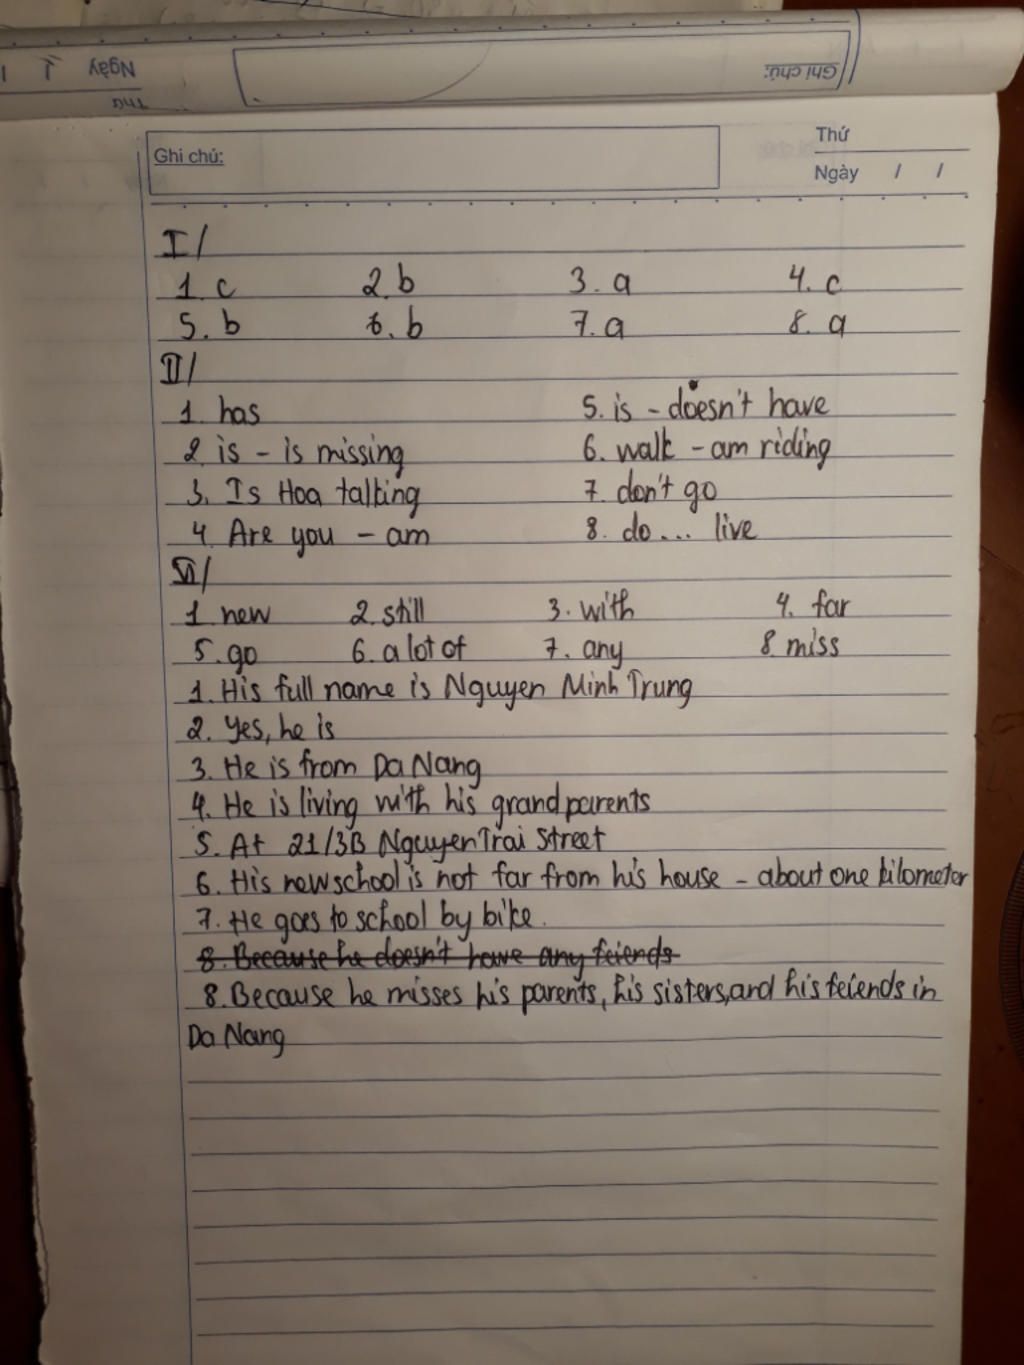 Ngày / /
Ghi chú:
Thứ
Ghi chú:
Thứ
Ngày / /
I/
1. c 2. b 3. a 4. c
5. b 6. b 7. a 8. a
II/
1. has 5. is - doesn't have
2. is - is missing 6. walk - am riding
3. Is Hoa talking 7. don't go
4. Are you - am 8. do... live
VI/
1. new 2. still 3. with 4. far
5. go 6. a lot of 7. any 8. miss
1. His full name is Nguyen Minh Trung
2. Yes, he is
3. He is from Da Nang
4. He is living with his grandparents
5. At 21/3B Nguyen Trai Street
6. His new school is not far from his house - about one kilometer
7. He goes to school by bike.
8. Because he doesn't have any feiends
8. Because he misses his parents, his sisters, and his feiends in
Da Nang